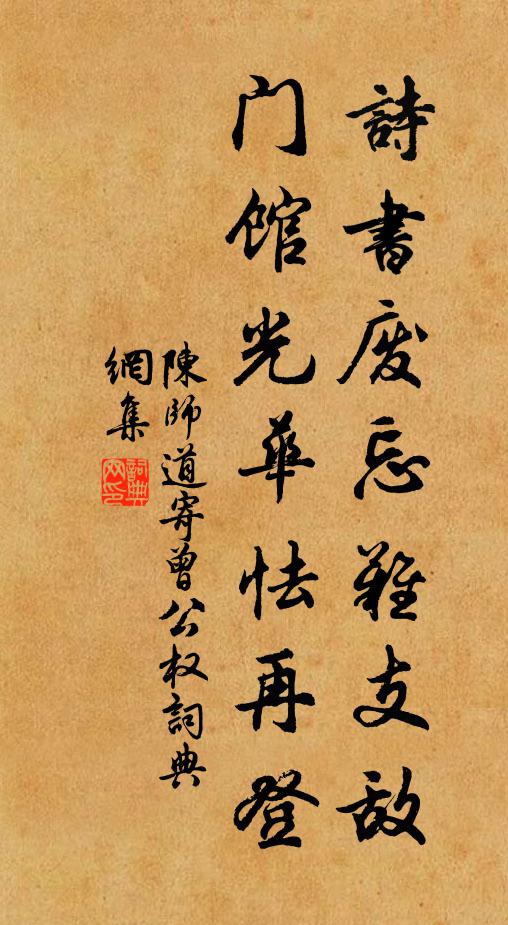 詩書废忘難支敌
门馆光華怯再登
陳師道寄曾公权詞典
網集
詞典
网印